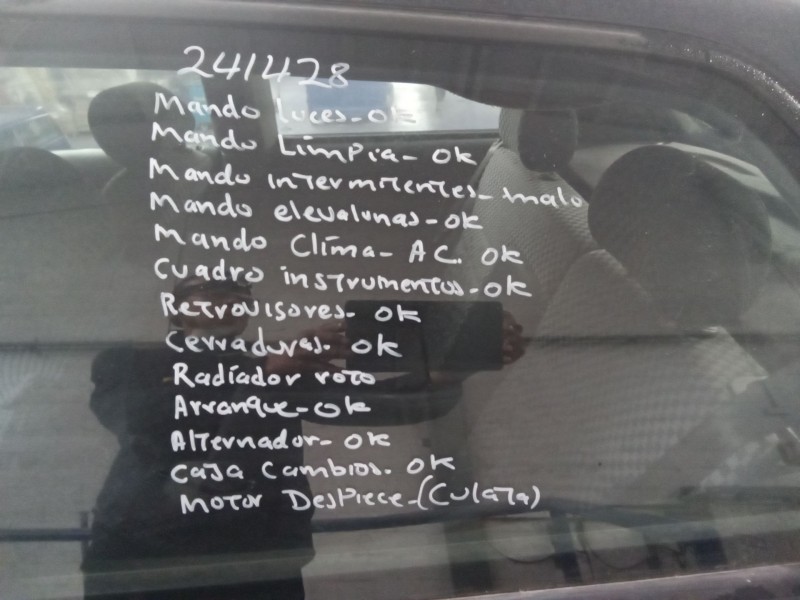 241428
Mando luces- Ok
Mando Limpia- Ok
Mando intermitentes- malo
Mando elevalunas- Ok
Mando Clima- A C. Ok
Cuadro instrumentos- Ok
Retrovisores- Ok
Cerraduras. Ok
Radiador roto
Arranque- Ok
Alternador- Ok
Caja Cambios. Ok
Motor Despiece-(Culata)